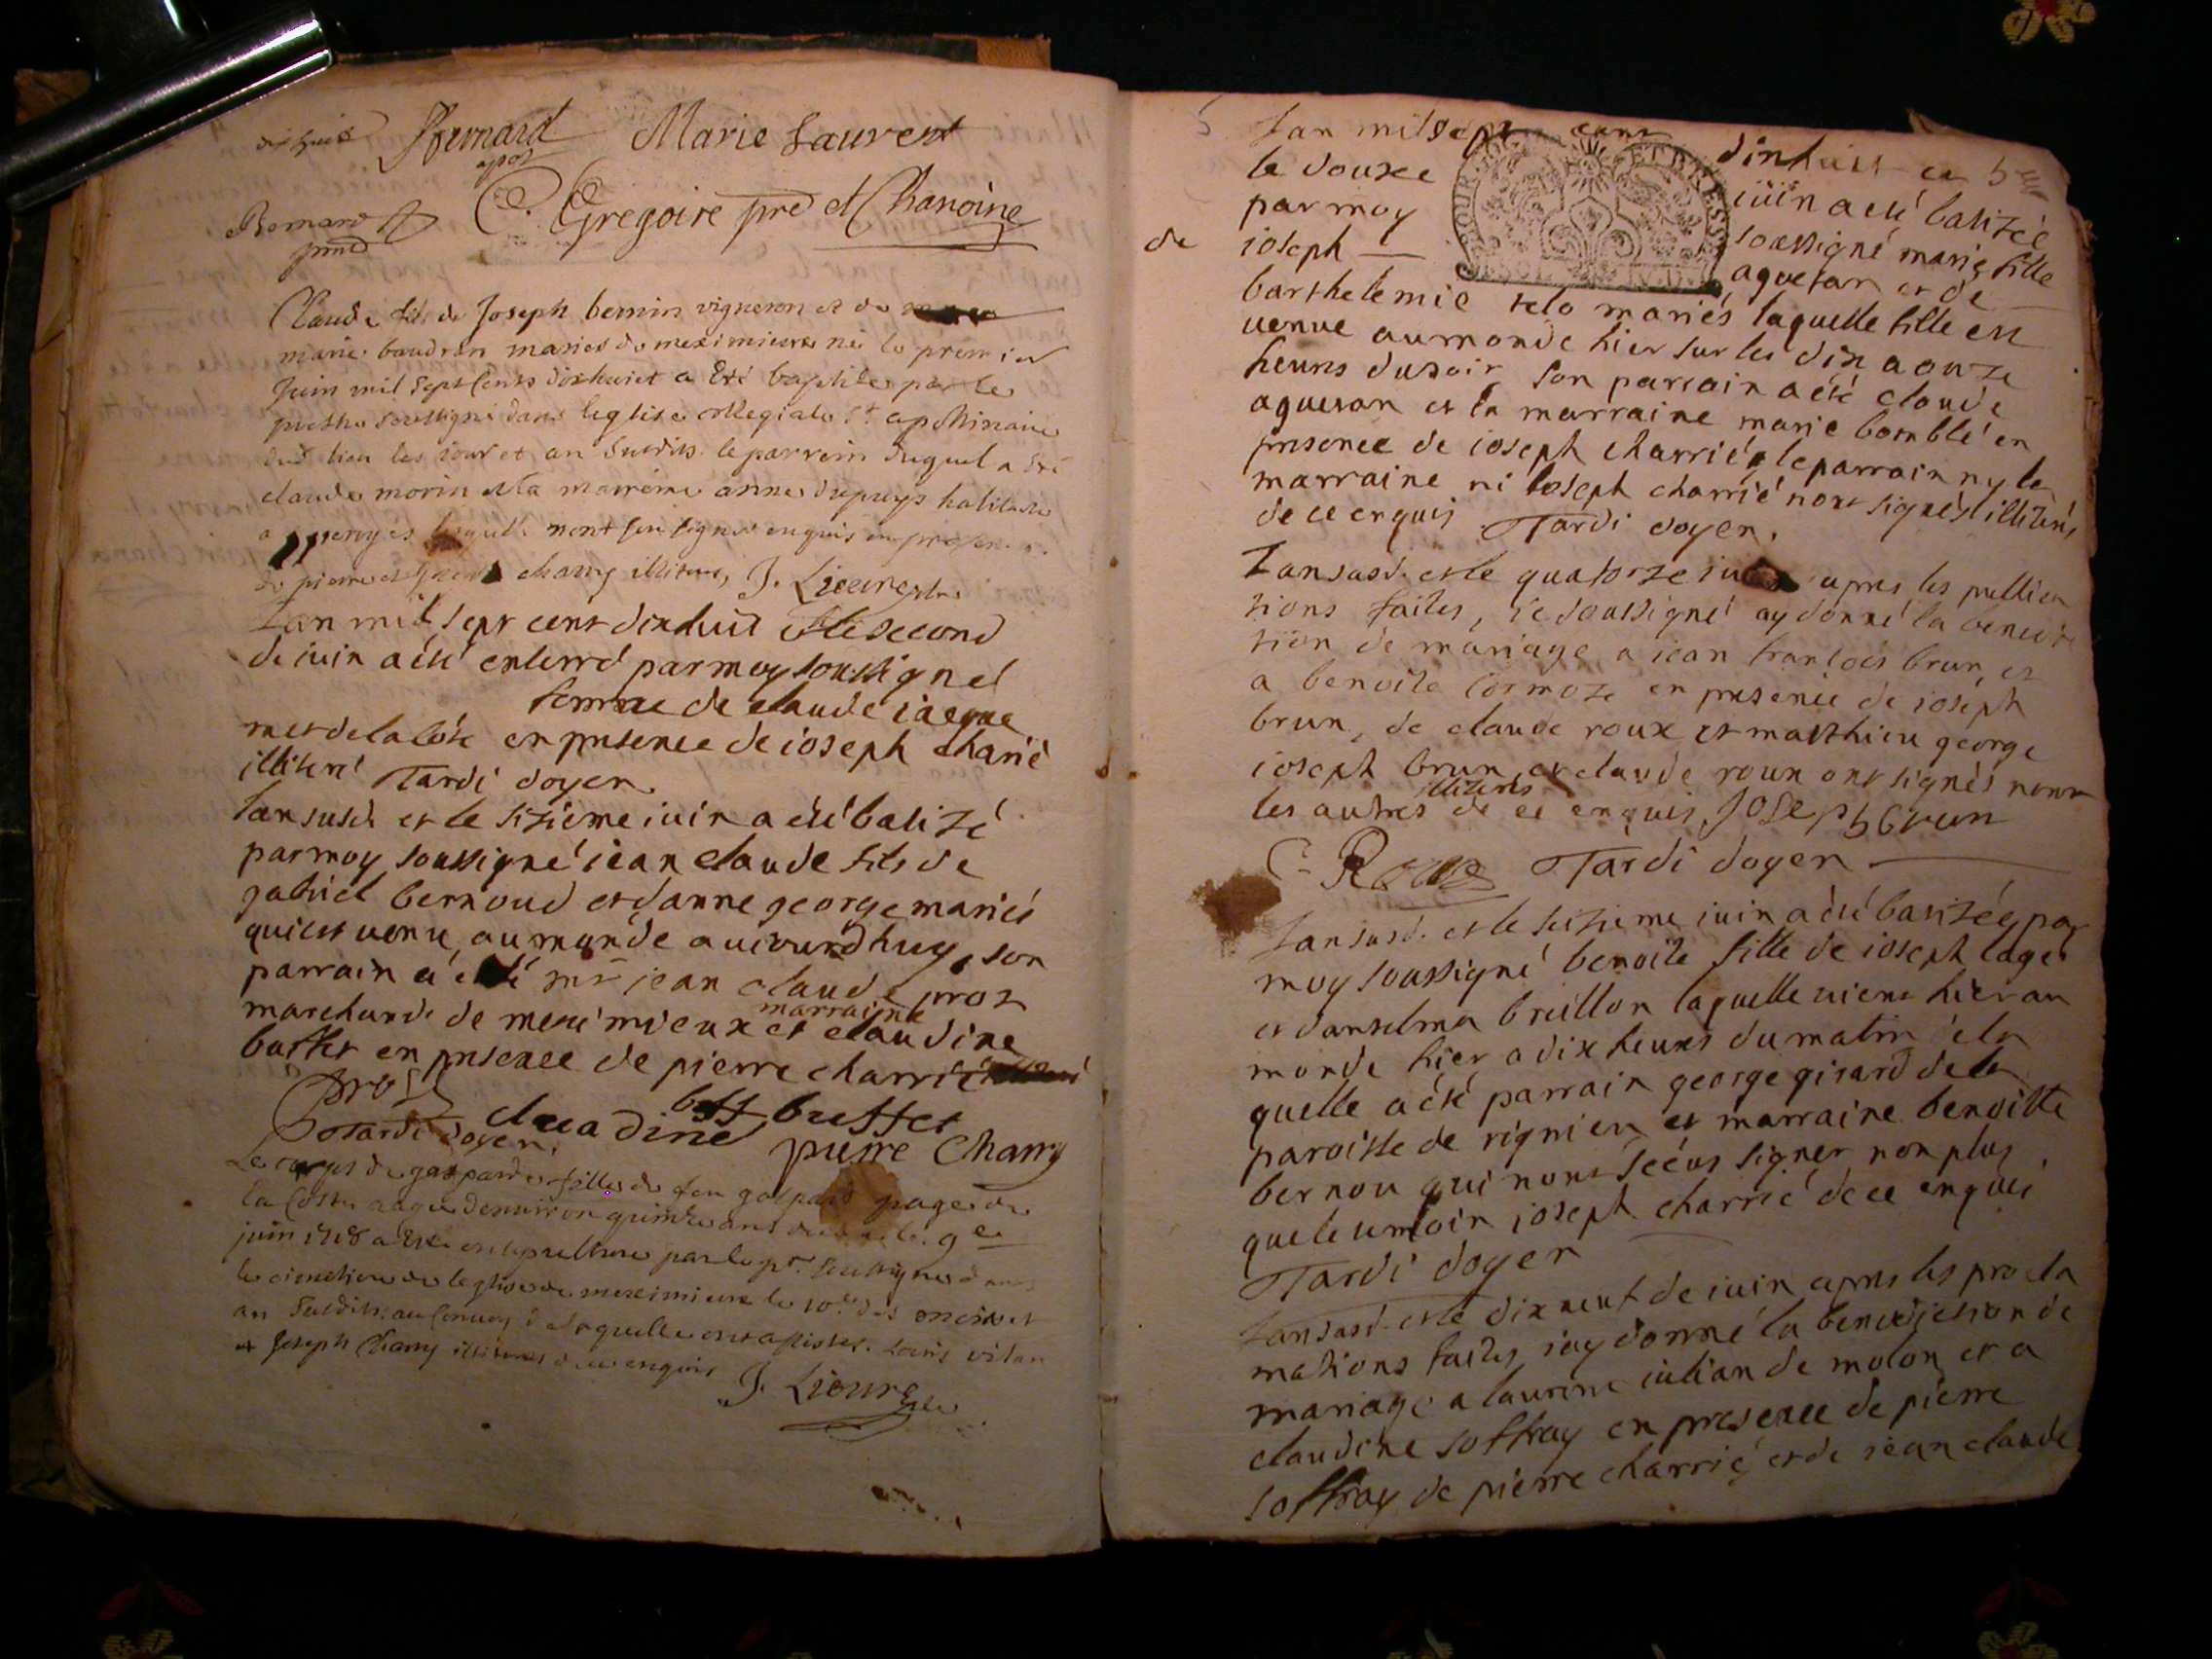 dix huit JBernard Marie Laurent
Bernard C. Gregoire pre et Chanoine
Claude fils de Joseph bernin vigneron et de
marie baudran maries de meximieux né le premier
Juin mil sept Cents dixhuict a Eté baptisé par le
prestre soussigné dans leglise collegiale St apollinaire
dud lieu les jour et an Susdits le parrein duquel a Eté
claude morin et la marreine anne dupuys habitante
a peroges lesquels nont sceu signer enquis en presence
de pierre et charry illiterés, J. Lieure ptre
Lan mil sept cent dixhuit et le second
de iuin a eté enterré par moy soussigné
femme de claude iacque
met de la cote en presence de ioseph charié
illiteré Tardi doyen
lan susdt et le sizieme iuin a eté batizé
par moy soussigné iean claude fils de
gabriel bernoud et danne george mariés
qui est venu au monde auiourdhuy, son
parrain a eté mr jean claude pros
marchand de meximieux et marraine claudine
buffet en presence de pierre charrié
pros claudine buffet
Tardi doyen. pierre Charry
Le corps de gasparde fille de feu gaspard page de
la Coste aagée denviron quinze ans
juin 1718 a Eté ensepulturé par le pr. soussigné dans
le cimetiere de leglise de meximieux le 10e des mois et
an Susdits au Convoy de laquelle ont assistes Louis vitan
et Joseph Charry illiterés de ce enquis J. Lieure ptre
5 Lan mil sept cent dixhuit et
le douze iuin a eté batizée
par moy soussigné marie fille
de ioseph aguetan et de
barthelemie telo mariés laquelle fille est
venue au monde hier sur les dix a onze
heures du soir son parrain a eté claude
aguetan et la marraine marie bomblé en
presence de ioseph charrié, le parrain ny la
marraine ni ioseph charrié nont signés illiterés
de ce enquis Tardi doyen.
Lan susd. et le quatorze iuin apres les publica
tions faites, ie soussigné ay donné la benedic
tion de mariage a iean francois brun, et
a benoite cormoze en presence de ioseph
brun, de claude roux et matthieu george
ioseph brun et claude roux ont signés nont
les autres illiterés de ce enquis, Joseph brun
C. Roux Tardi doyen
Lan susd. et le seizieme iuin a eté batizée par
moy soussigné benoite fille de ioseph lager
et danselma breillon laquelle vient hier au
monde hier a dix heures du matin de la
quelle a eté parrain george girard de la
paroisse de rignieu et marraine benoitte
bernou qui nont sceus signer non plus
que le temoin ioseph charrié de ce enquis
Tardi doyen
Lan susd. et le dixneuf de iuin apres les procla
mations faites, iay donné la benediction de
mariage a laurent iulian de molon et a
claudine soffray en presence de pierre
soffray de pierre charrié, et de iean claude